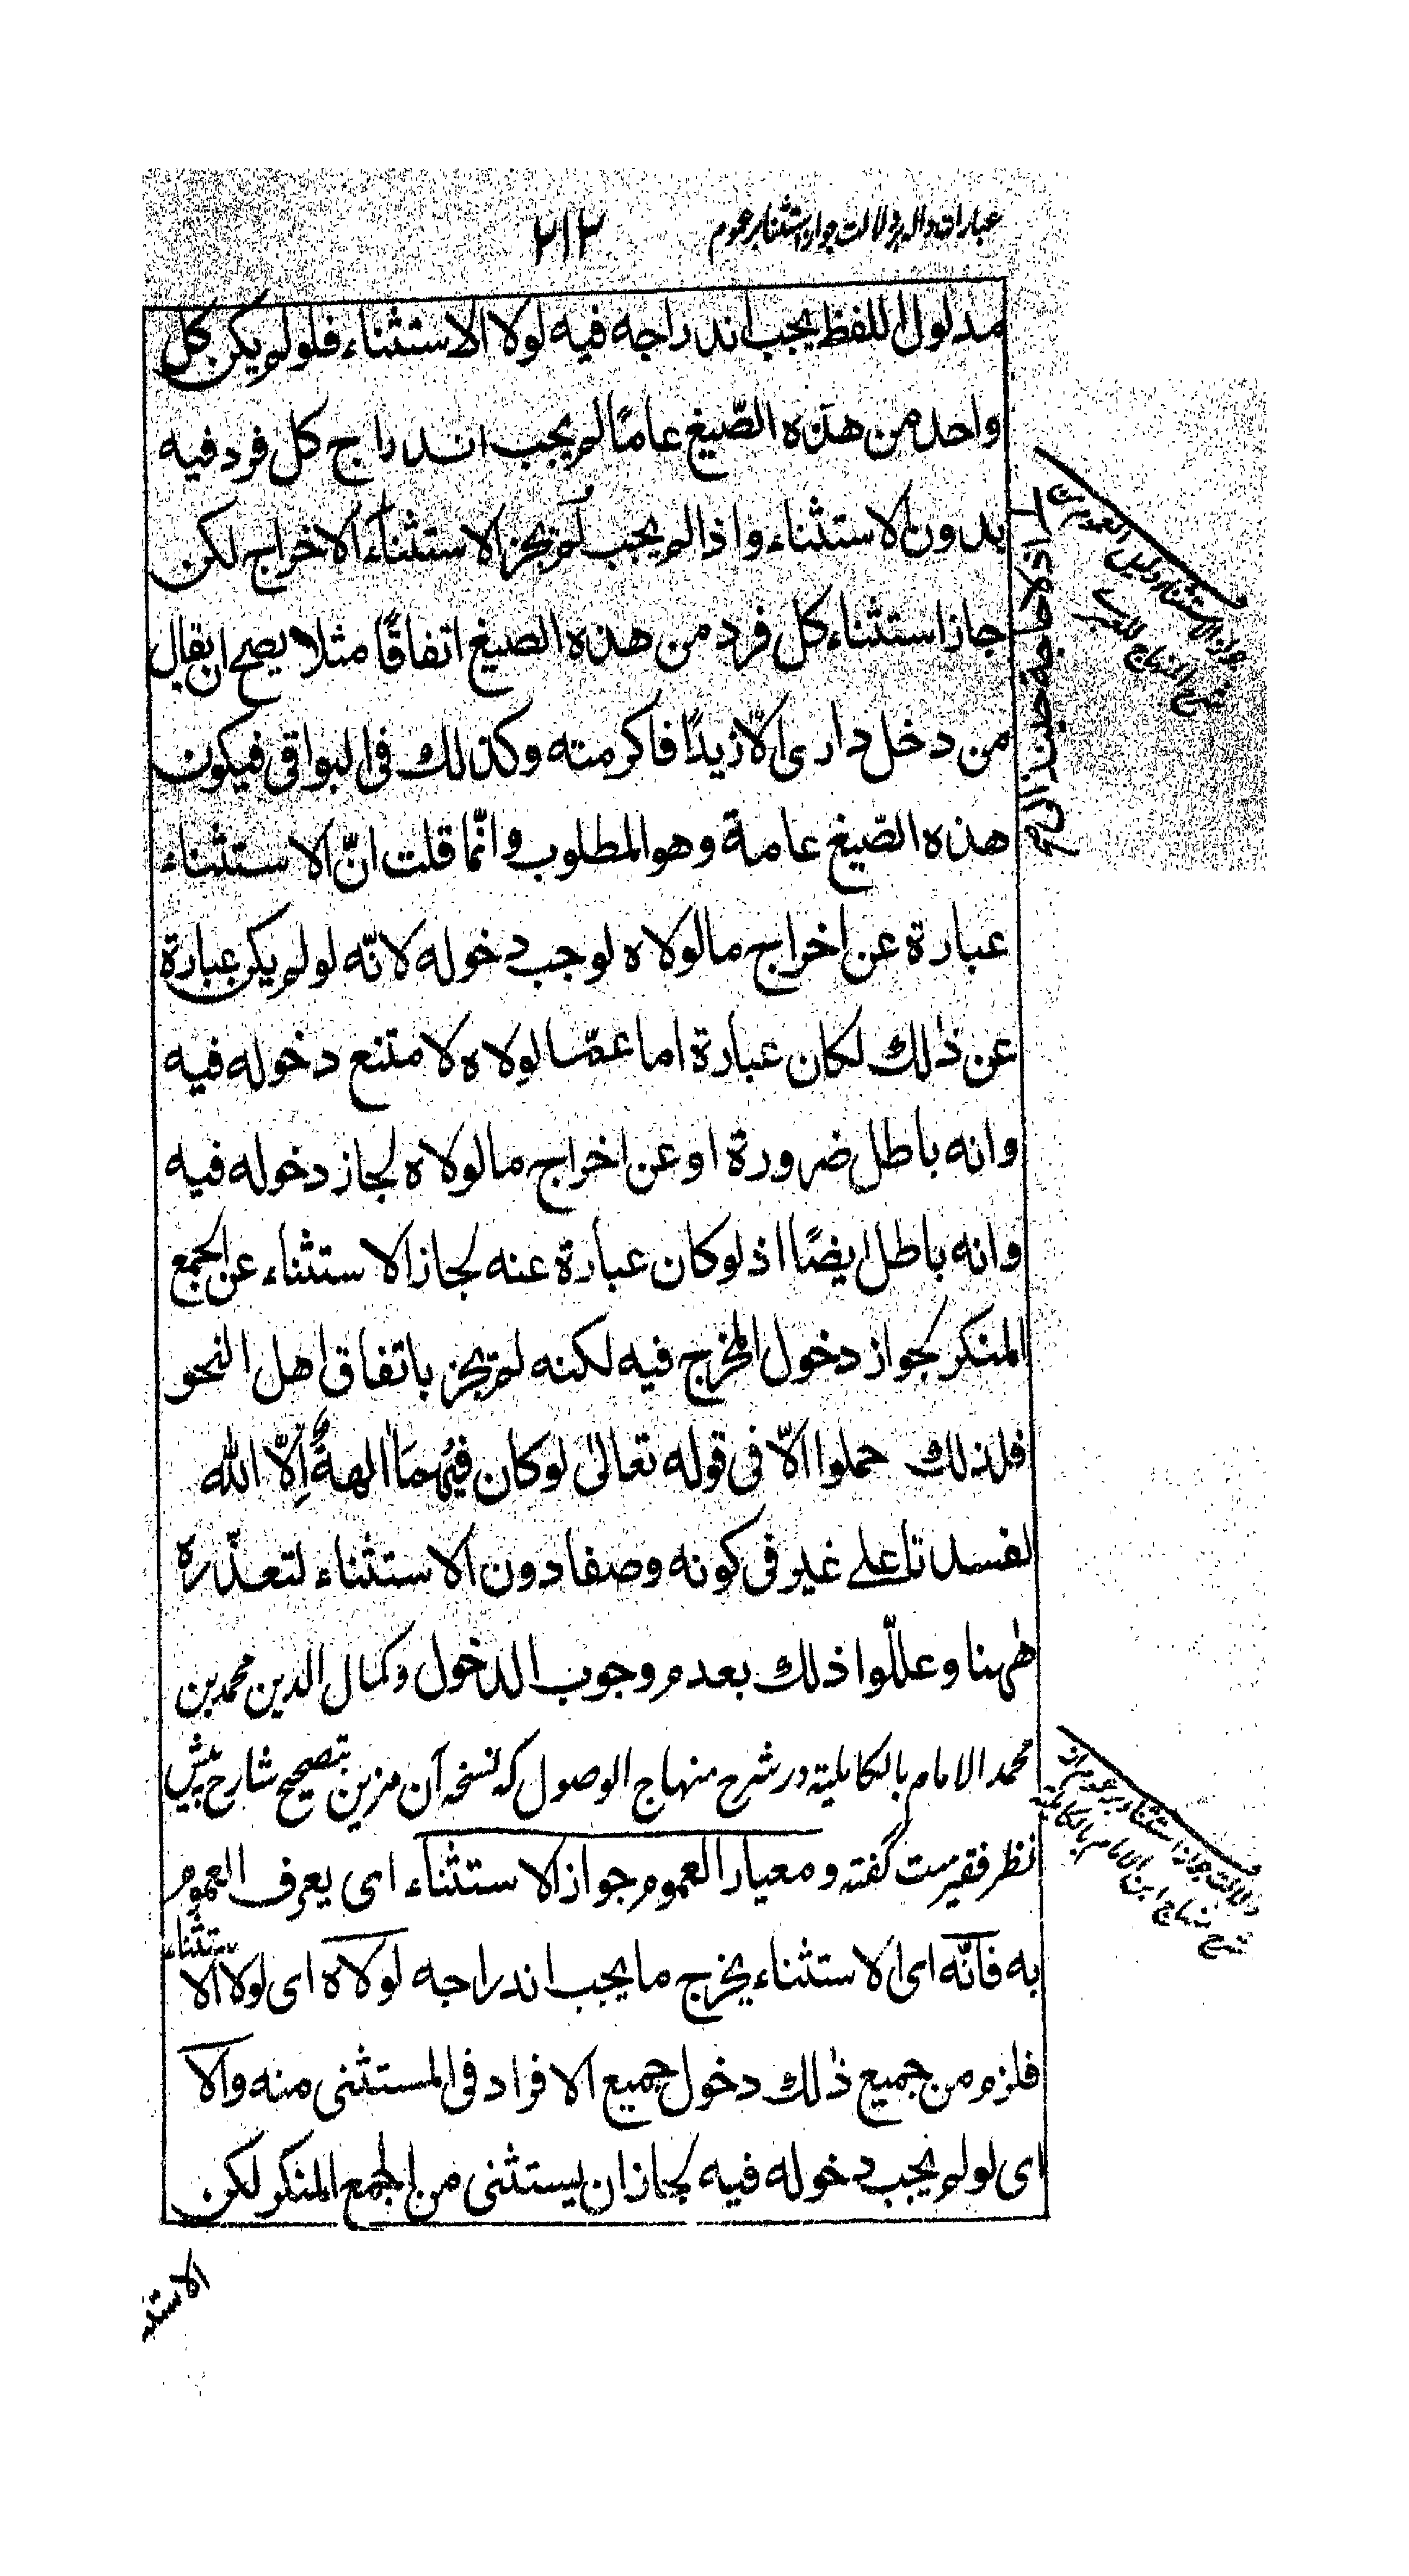 عبارات داله بر دلالت جواز استثنا بر عموم ۲۱۲
مدلول اللفظ يجب اندراجه فيه لولا الاستثناء فلو لم يكن كل
واحد من هذه الصّيغ عامًا لم يجب اندراج كل فرد فيه
بدون الاستثناء واذا لم يجب لم يجز الاستثناء الاخراج لكن
جاز استثناء كل فرد من هذه الصيغ اتفاقًا مثلا يصح ان يقال
من دخل داري الّا زيدًا فاكرمته وكذلك في البواقي فيكون
هذه الصّيغ عامة وهو المطلوب وانّما قلت انّ الاستثناء
عبارة عن اخراج ما لولاه لوجب دخوله لانّه لو لم يكن عبارة
عن ذلك لكان عبارة اما عمّا لولاه لامتنع دخوله فيه
وانه باطل ضرورة او عن اخراج ما لولاه لجاز دخوله فيه
وانه باطل ايضًا اذ لو كان عبارة عنه لجاز الاستثناء عن الجمع
المنكر لجواز دخول المخرج فيه لكنه لم يجز باتفاق اهل النحو
فلذلك حملوا الّا في قوله تعالى لو كان فيهما الهةٌ اِلّا الله
لفسدتا على غير في كونه وصفا دون الاستثناء لتعذّره
ههنا وعللّوا ذلك بعدم وجوب الدخول وكمال الدين محمد بن
محمد الامام بالكاملية در شرح منهاج الوصول كه نسخه آن مزين بتصحيح شارح پيش
نظر فقيرست گفته ومعيار العموم جواز الاستثناء اى يعرف العموم
به فانّه اى الاستثناء يخرج ما يجب اندراجه لولاه اى لولا الاستثناء
فلزم من جميع ذلك دخول جميع الافراد في المستثنى منه والّا
اى لو لم يجب دخوله فيه لجاز ان يستثنى من الجمع المنكر لكن
الاستثـ
جواز الاستثناء دليل العموم من
شرح المنهاج للعبرى
دلالت جواز استثنا بر عموم از
شرح منهاج ابن الامام بالكاملية